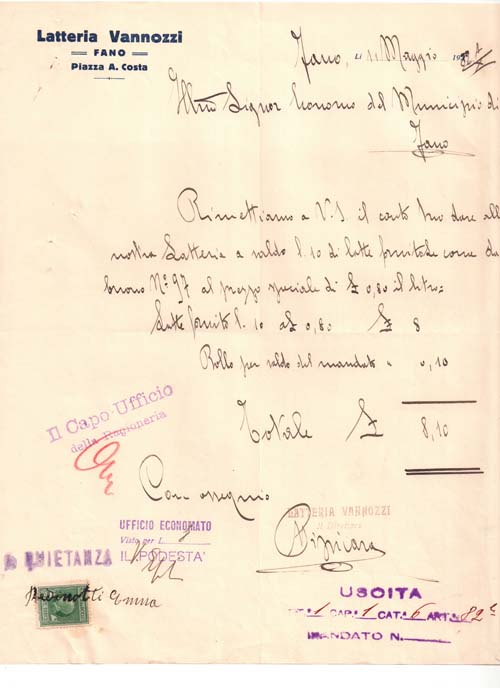 Latteria Vannozzi
FANO
Piazza A. Costa
Fano, li 11 Maggio 1932
Ill.mo Signor Economo del Municipio di
Fano
Rimettiamo a V.S. il conto Suo dare alla
nostra Latteria a saldo l. 10 di latte fornitole come da
buono N° 97 al prezzo speciale di £ 0,80 il litro=
Latte fornito l. 10 a £ 0,80 £ 8
Bollo per saldo del mandato " 0,10
Totale £ 8,10
Il Capo Ufficio
della Ragioneria
Con ossequio
LATTERIA VANNOZZI
Il Direttore
UFFICIO ECONOMATO
Visto per L. 8
IL PODESTA'
QUIETANZA
Emma
USCITA
TIT. 1 CAP. 1 CAT. 6 ART. 82
MANDATO N.